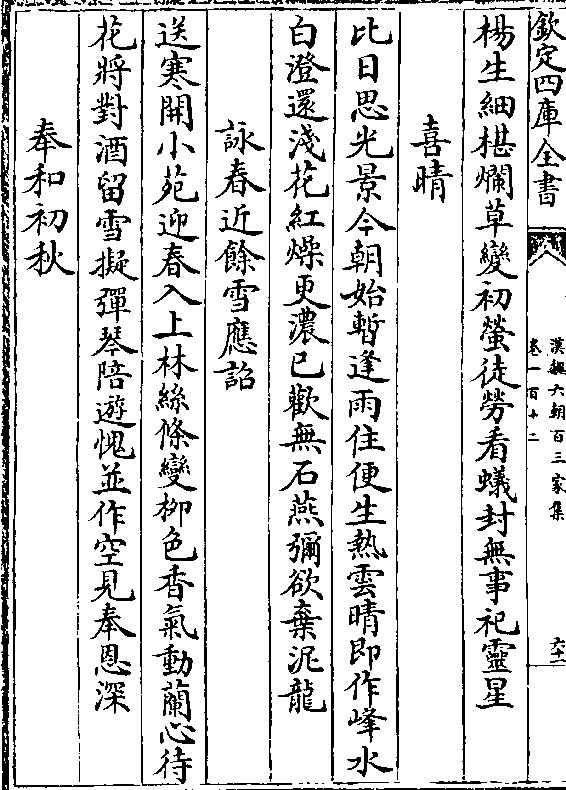 欽定四庫全書
漢魏六朝百三家集
卷一百十二
六十一
楊生細椹爛草變初螢徒勞看蟻封無事祀靈星
喜晴
比日思光景今朝始暫逢雨住便生熱雲晴即作峰水
白澄還淺花紅燥更濃已歡無石燕彌欲棄泥龍
詠春近餘雪應詔
送寒開小苑迎春入上林絲條變柳色香氣動蘭心待
花將對酒留雪擬彈琴陪遊愧並作空見奉恩深
奉和初秋